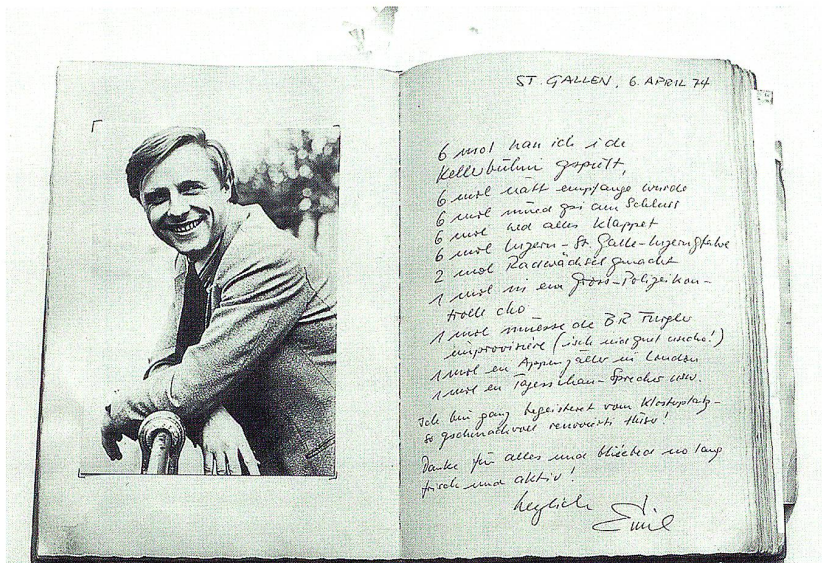 ST. GALLEN, 6. APRIL 74
6 mol han ich i de
Kellerbühni gspielt,
6 mol nätt empfange worde
6 mol müed gsi am Schluss
6 mol hed alles klappet
6 mol Luzern - St. Galle - Luzern gfahre
2 mol Radwächsel gmacht
1 mol in en Gross-Polizeikon-
trolle cho
1 mol müesse de BR Furgler
improvisiere (isch nid guet usecho!)
1 mol en Appezäller in London
1 mol en Tagesschau-Sprecher usw.
Ich bin ganz begeisteret vom Klosterplatz-
so gschmackvoll renovierti Hüser!
Danke für alles und bliibed no lang
frisch und aktiv!
herzlich
Emil